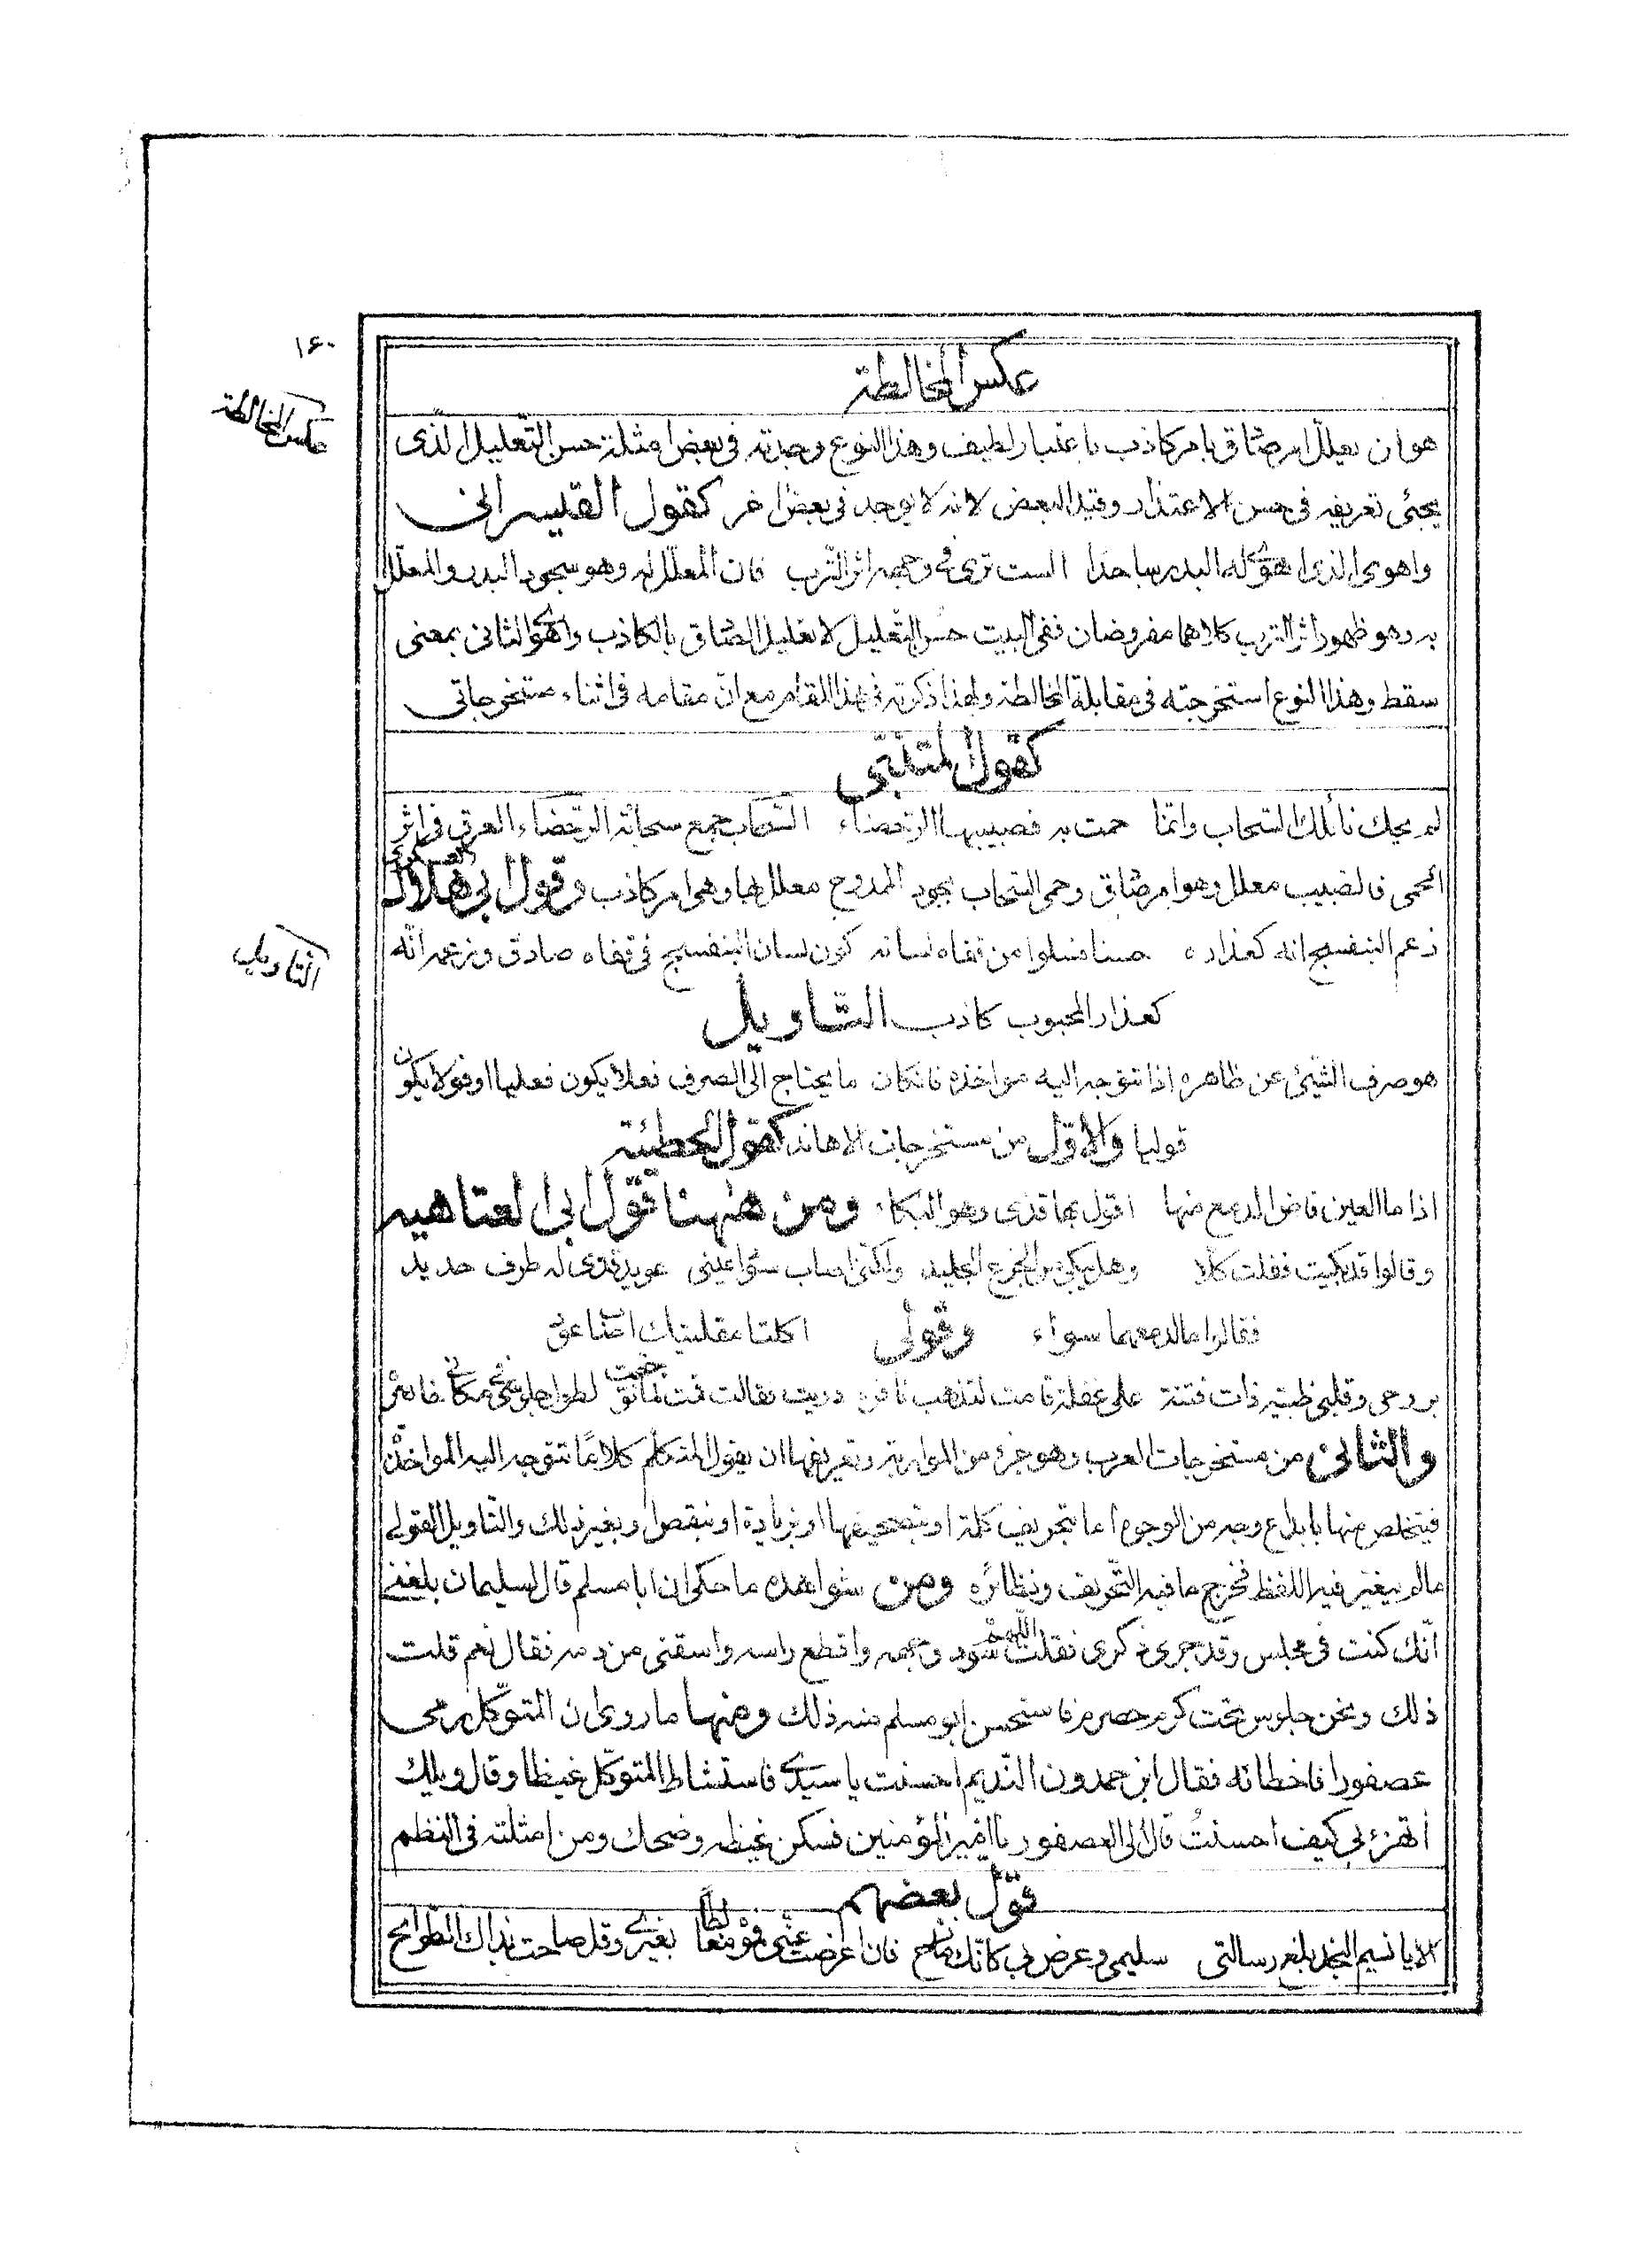 ١٤٠
عكس المخالطة
عكس المخالطة
هو ان يعلّل امر صّادق بامر كاذب باعتبار لطيف وهذا النوع وجدته فى بعض امثلة حسن التّعليل الّذى
يجئى تعريفه فى حسن الاعتذار وقيد البعض لانه لا يوجد فى بعض اخر كقول القيسرانى
واهوى الذى اهوى له البدر ساجدا الست ترى فى وجهه اثر التّرب فان المعلّل له وهو سجود البدر والمعلّل
به وهو ظهور اثر الترب كلاهما مفروضان ففى البيت حسن التّعليل لا تعليل الصّادق بالكاذب واهوى الثانى بمعنى
سقط وهذا النوع استخرجته فى مقابلة المخالطة ولهذا ذكرته فى هذا المقام مع انّ مقامه فى اثناء مستخرجاتى
كقول المتنبّى
لم يحك نائلك السّحاب وانّما حمت به فصبيبها الرّحضاء السّحاب جمع سحابة الرّحضاء العرق فى اثر
الحمى فالصبيب معلل وهو امر صّادق وحمى السّحاب بجود الممدوح معلل بها وهى امر كاذب وقول ابى هلال العسكرى
زعم البنفسج انه كعذاره حسنا فسلوا من قفاه لسانه كون لسان البنفسج فى قفاه صادق وزعمه انّه
التاويل
كعذار المحبوب كاذب التّاويل
هو صرف الشّيئ عن ظاهره اذا تتوجه اليه مواخذه فانكان ما يحتاج الى الصرف فعلا يكون فعليا او قولا يكون
قوليا والاوّل من مستخرجات الاهاند كقول الحطيئة
اذا ما العين فاض الدمع منها اقول بها قذى وهو البكاء ومن ههنا قول ابى العتاهيه
وقالوا قد بكيت فقلت كلا وهل يبكى من الجزع الجليد ولكنّى اصاب سوّا عينى عويد قذى له طرف حديد
فقالوا ما لدمعهما سواء وقولى اكلتا مقلتيك اصاب عود
بروحى وقلبى ظبية ذات فتنة على غفلة قامت لتذهب
والثانى من مستخرجات العرب وهو جزء من المواربة وتعريفها ان يقول المتكلّم كلامًا تتوجه اليه المواخذة
فيتخلص منها بابلاغ وجه من الوجوه اما بتحريف كلمة او بتصحيفها او بزيادة او بنقص او بغير ذلك والتّاويل القولى
ما لم يغيّر فيه اللفظ فخرج ما فيه التّحريف ونظائره ومن شواهده ما حكى ان ابا مسلم قال لسليمان بلغنى
انّك كنت فى مجلس وقد جرى ذكرى فقلت اللهم سوّد وجهه واقطع راسه واسقنى من دمه فقال نعم قلت
ذلك ونحن جلوس تحت كرم حصرم فاستحسن ابو مسلم منه ذلك ومنها ما روى ان المتوكّل رمى
عصفورا فاخطاته فقال ابن حمدون النّديم احسنت يا سيّدى فاستشاط المتوكّل غيظا وقال ويلك
اتهزء بى كيف احسنتُ قال الى العصفور يا امير المؤمنين فسكن غيظه وضحك ومن امثلته فى النظم
قول بعضهم
الا يا نسيم النجد بلغ رسالتى سليمى وعرض بى كانّك مازح فان اعرضت عنّى فموّه مغالطا بغيرى وقل صاحت بذاك الطوائح